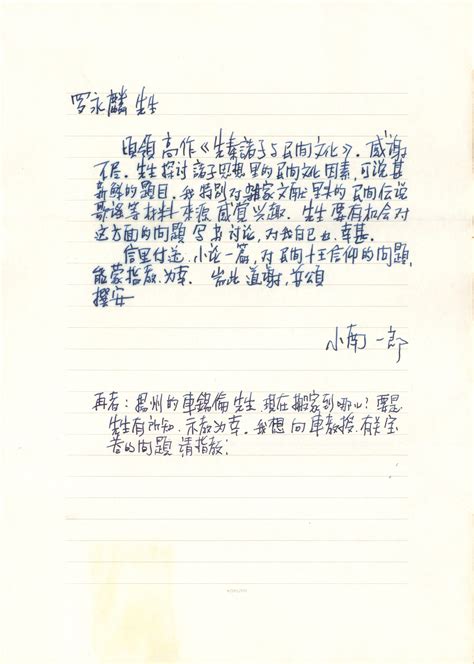 罗永麟 先生
顷领 高作《先秦諸子与民间文化》。感谢
不尽。先生探讨諸子思想里的民间文化因素,可说甚
新鮮的題目,我特别对雜家文献里来的民间伝说
歌谣等材料来源感覚兴趣。先生要有机会对
这方面的问題写书讨论,对我自己也幸甚。
信里付送小论一篇,对民间十王信仰的问題,
能蒙指教为幸。耑此道谢,并頌
撰安
小南一郎
再者:揚州的車錫倫先生现在搬家到哪儿?要是
先生有所知,示教为幸。我想向車教授有关宝
卷的问題请指教;